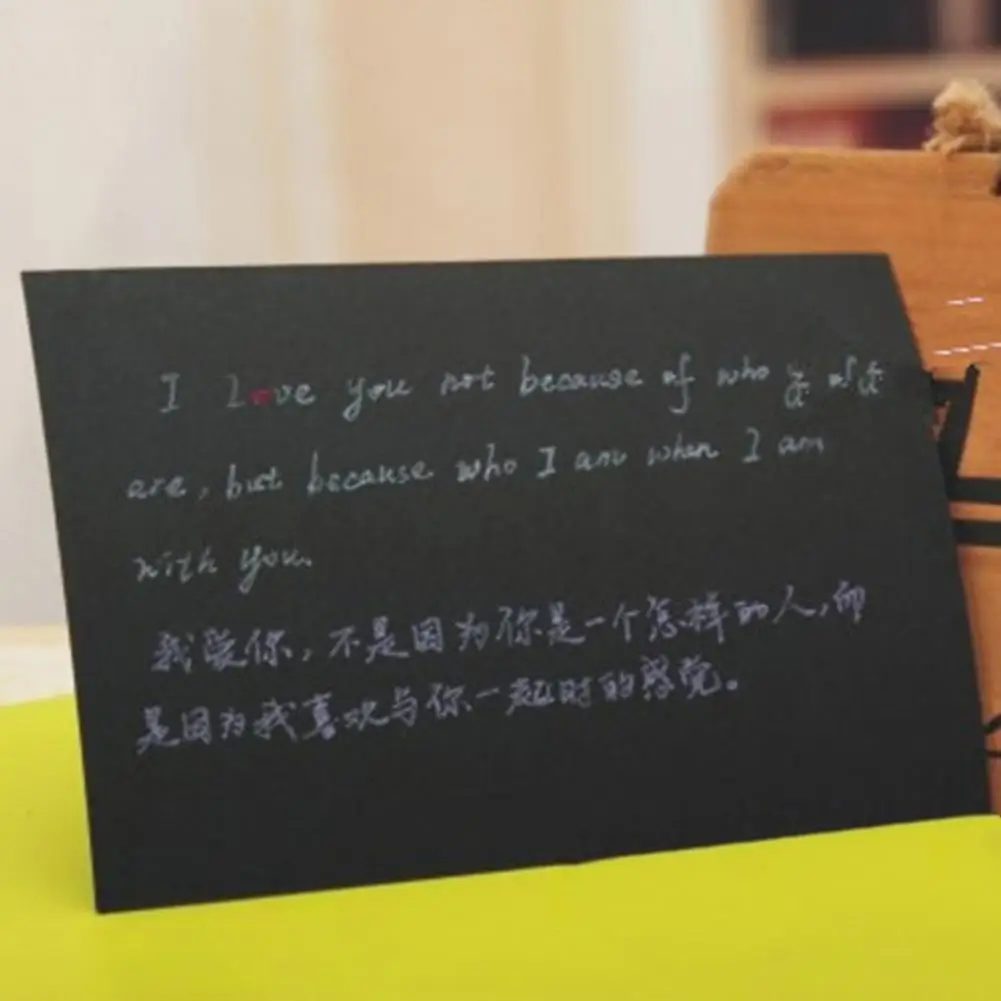 I Love you not because of who
are, but because who I am when I am
with you.
我爱你，不是因为你是一个怎样的人，而
是因为我喜欢与你一起时的感觉。